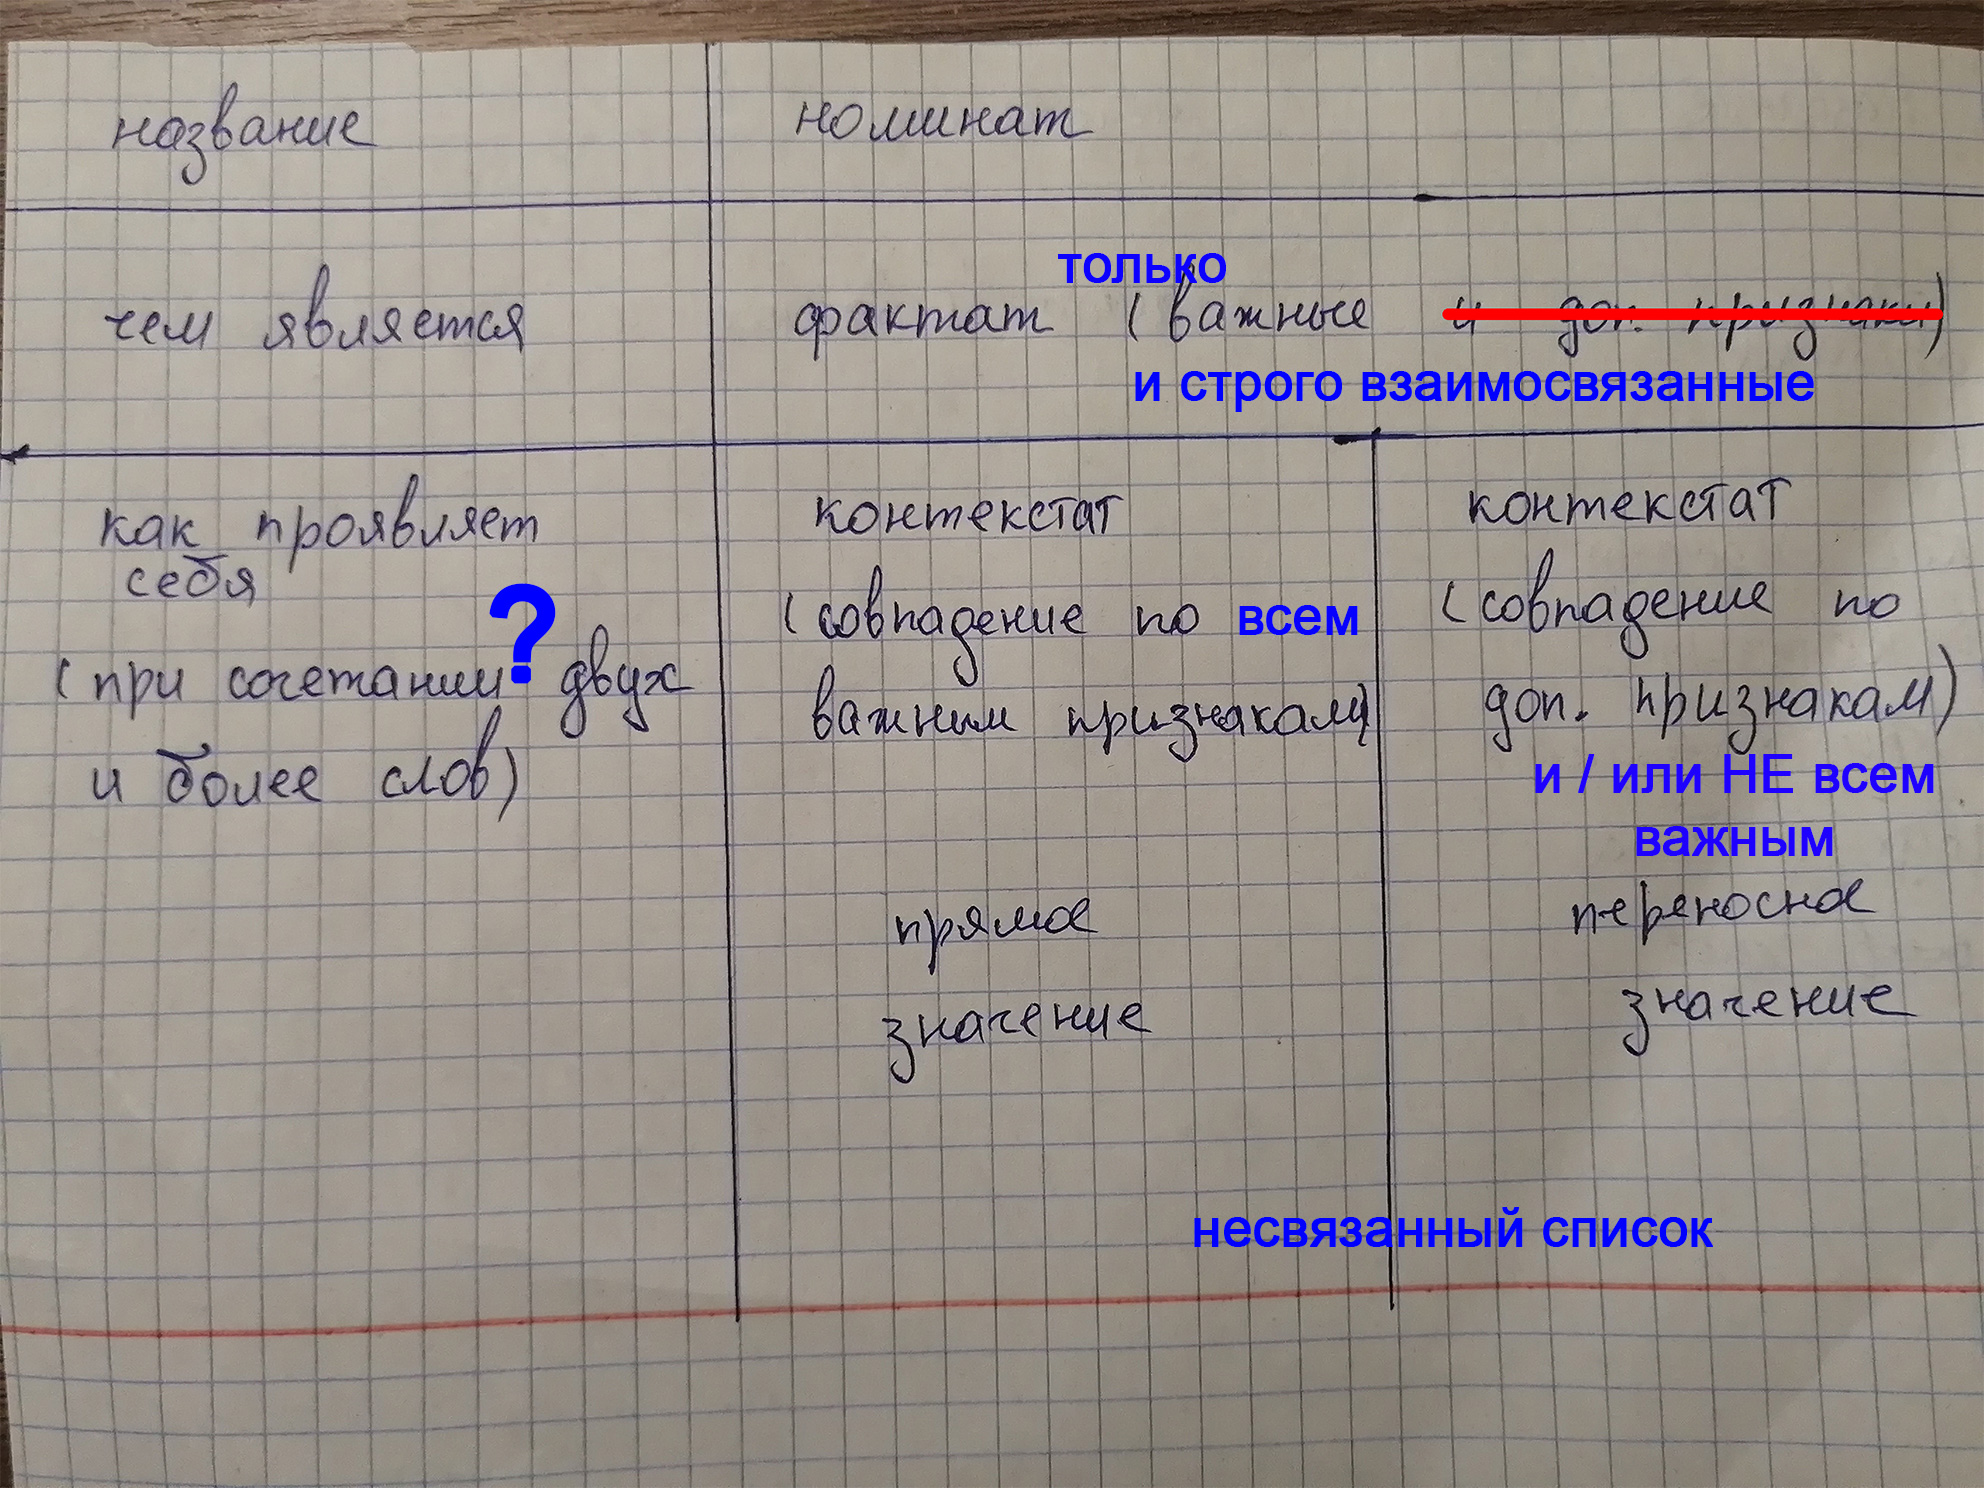 название
номинат
чем является
только
фактат (важные и доп. признаки)
и строго взаимосвязанные
как проявляет
себя
?
(при сочетании двух
и более слов)
контекстат
(совпадение по всем
важным признакам)
прямое
значение
контекстат
(совпадение по
доп. признакам)
и / или НЕ всем
важным
переносное
значение
несвязанный список